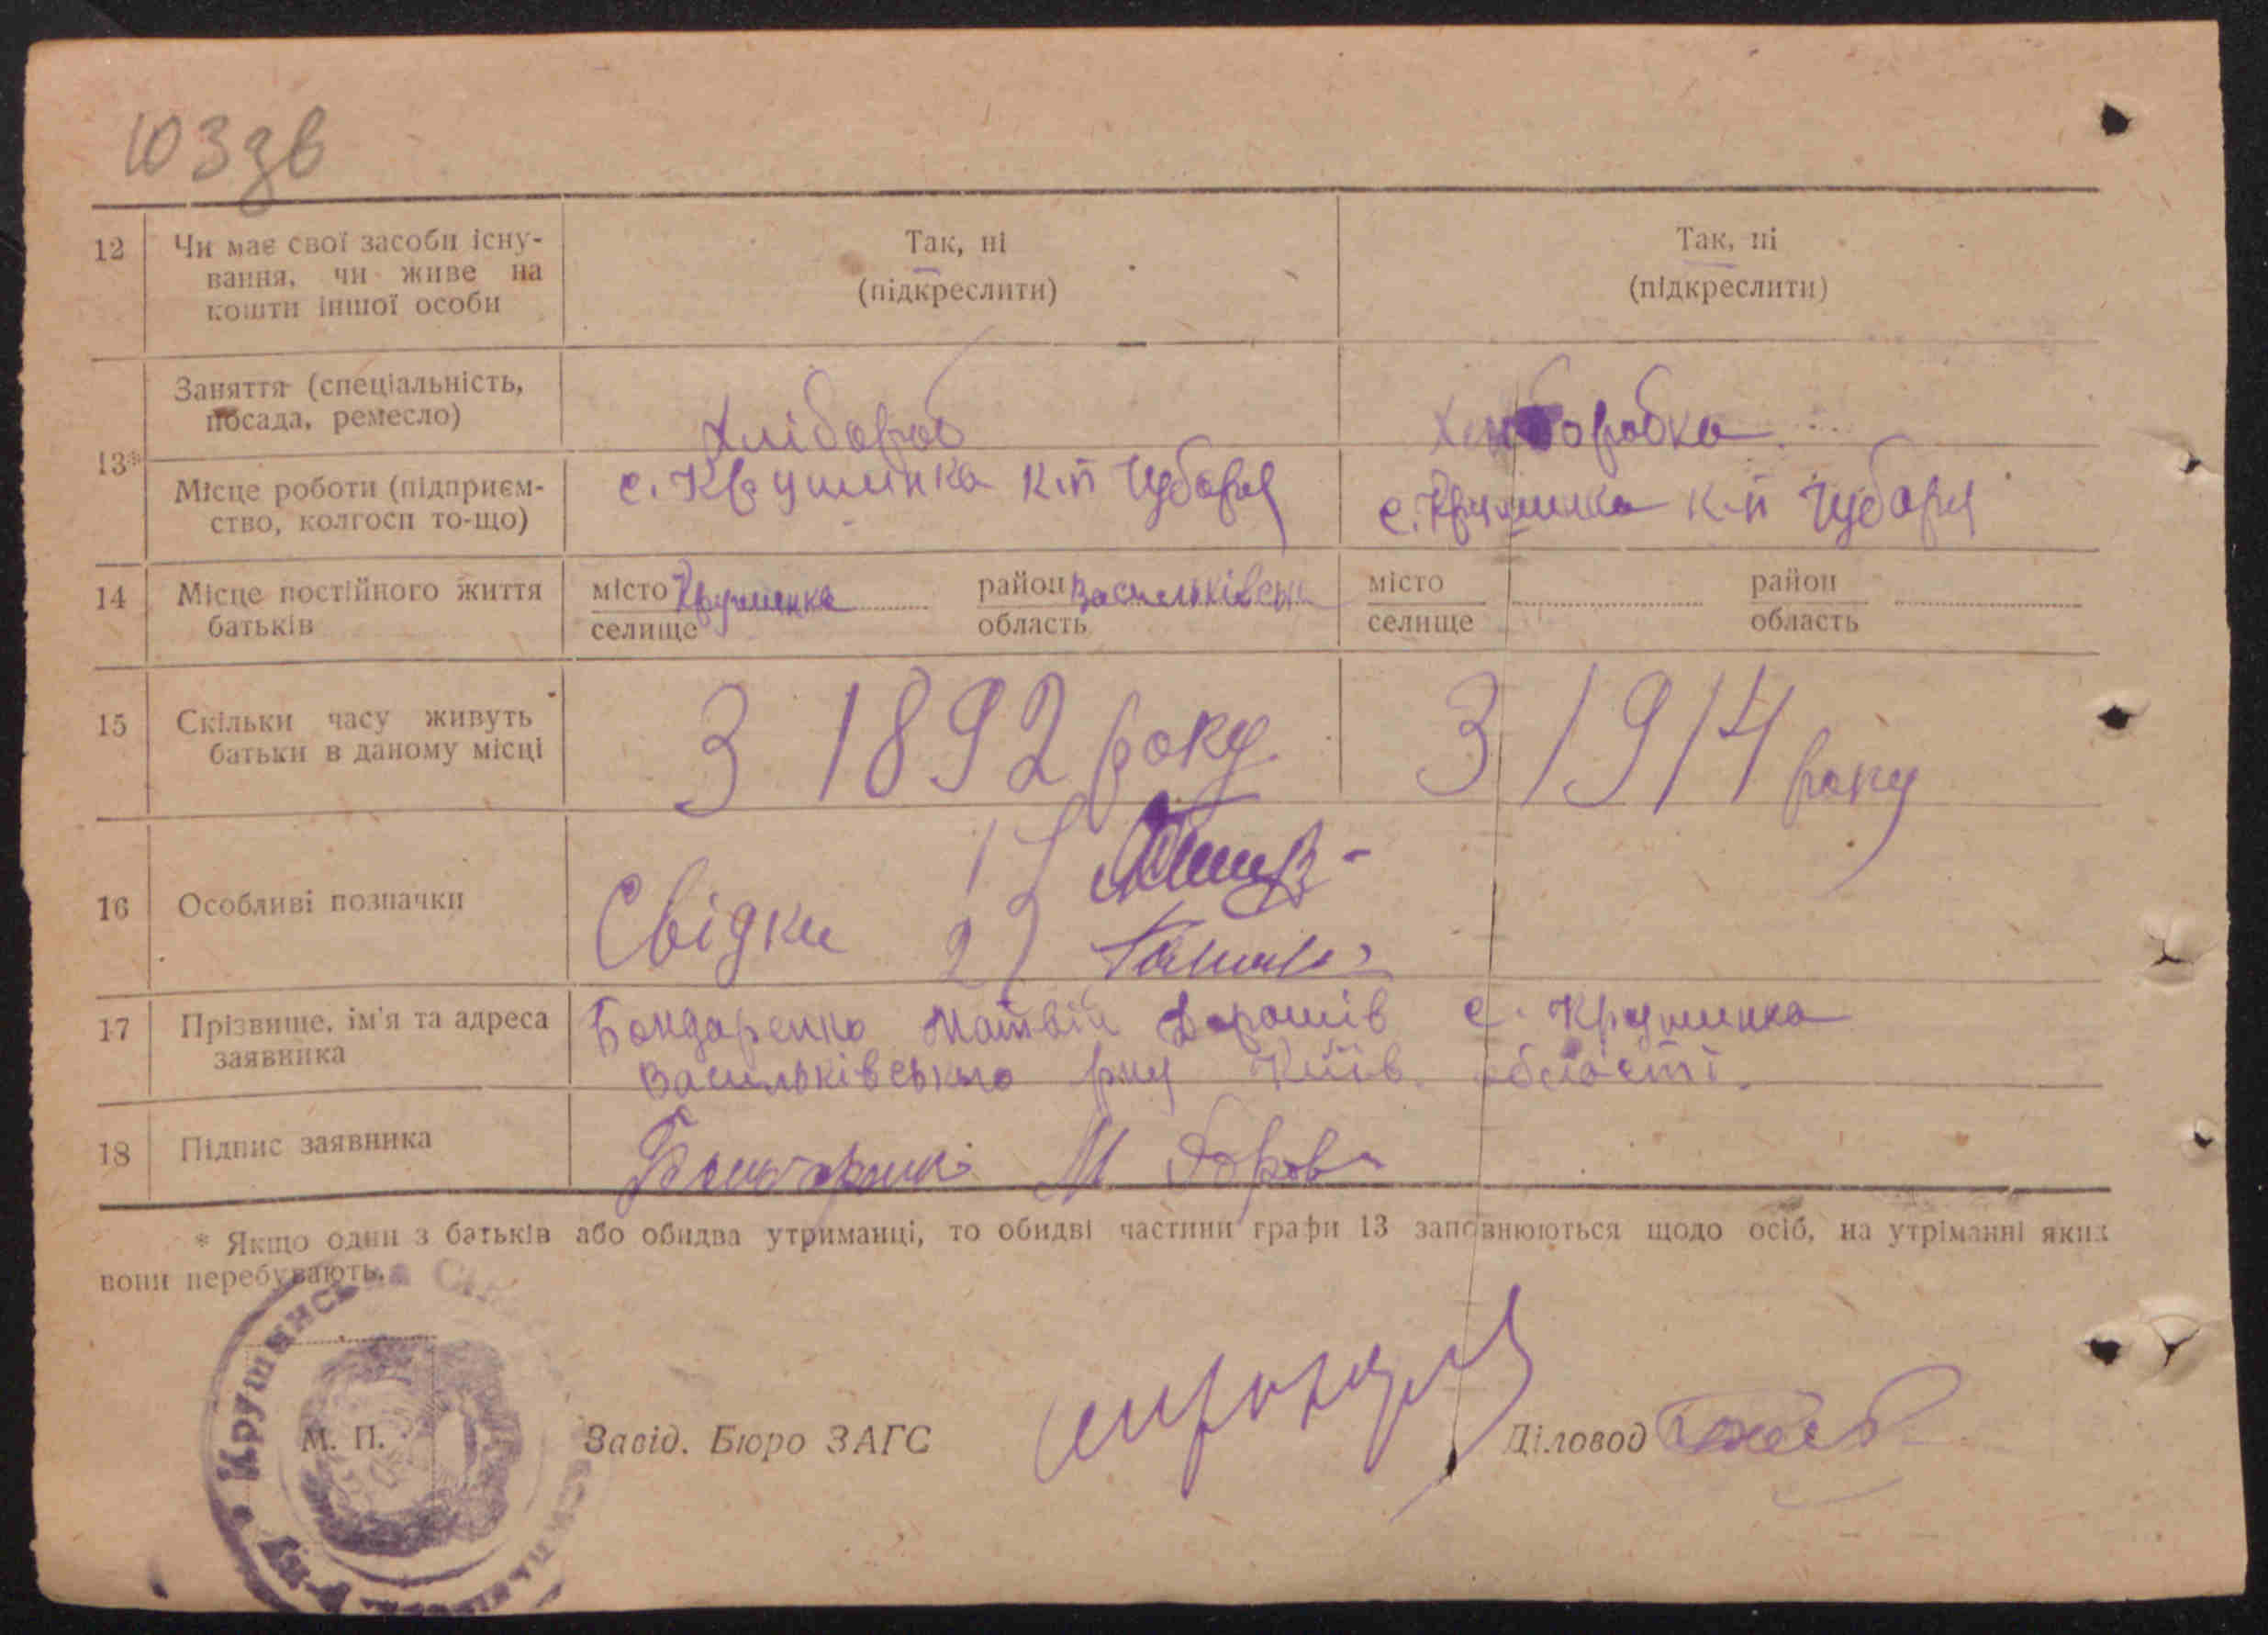 103зв
12 Чи має свої засоби існу- Так, ні Так, ні
вання, чи живе на (підкреслити) (підкреслити)
кошти іншої особи
13* Заняття (спеціальність, Хлібороб Хліборобка
посада, ремесло)
Місце роботи (підприєм- с. Крушинка к-п Чубаря с. Крушинка к-п Чубаря
ство, колгосп то-що)
14 Місце постійного життя місто Крушинка район Васильківськ місто район
батьків селище область селище область
15 Скільки часу живуть З 1892 року З 1914 року
батьки в даному місці
16 Особливі позначки Свідки 1)
2)
17 Прізвище, ім'я та адреса Бондаренко Матвій Дорошів с. Крушинка
заявника Васильківського р-ну Київ. області.
18 Підпис заявника М
* Якщо один з батьків або обидва утриманці, то обидві частини графи 13 заповнюються щодо осіб, на утріманні яких
вони перебувають.
Крушинська
М. П. Завід. Бюро ЗАГС Діловод